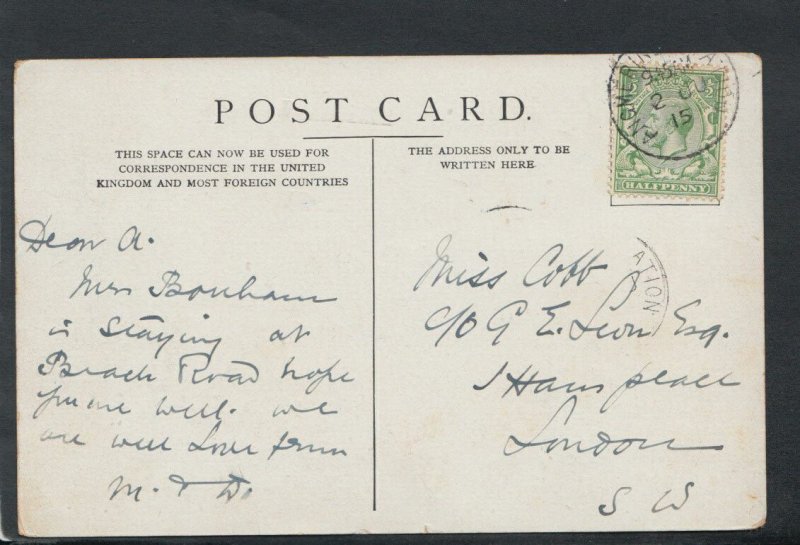 POST CARD.
THIS SPACE CAN NOW BE USED FOR
CORRESPONDENCE IN THE UNITED
KINGDOM AND MOST FOREIGN COUNTRIES
THE ADDRESS ONLY TO BE
WRITTEN HERE
HALFPENNY
2 JU
15
ATION
Dear A.
Mrs Bonham
is staying at
Beach Road hope
you are well. we
are well Love from
M. & D.
Miss Cobb
c/o G E. Leon Esq.
1 Hans place
London
S W